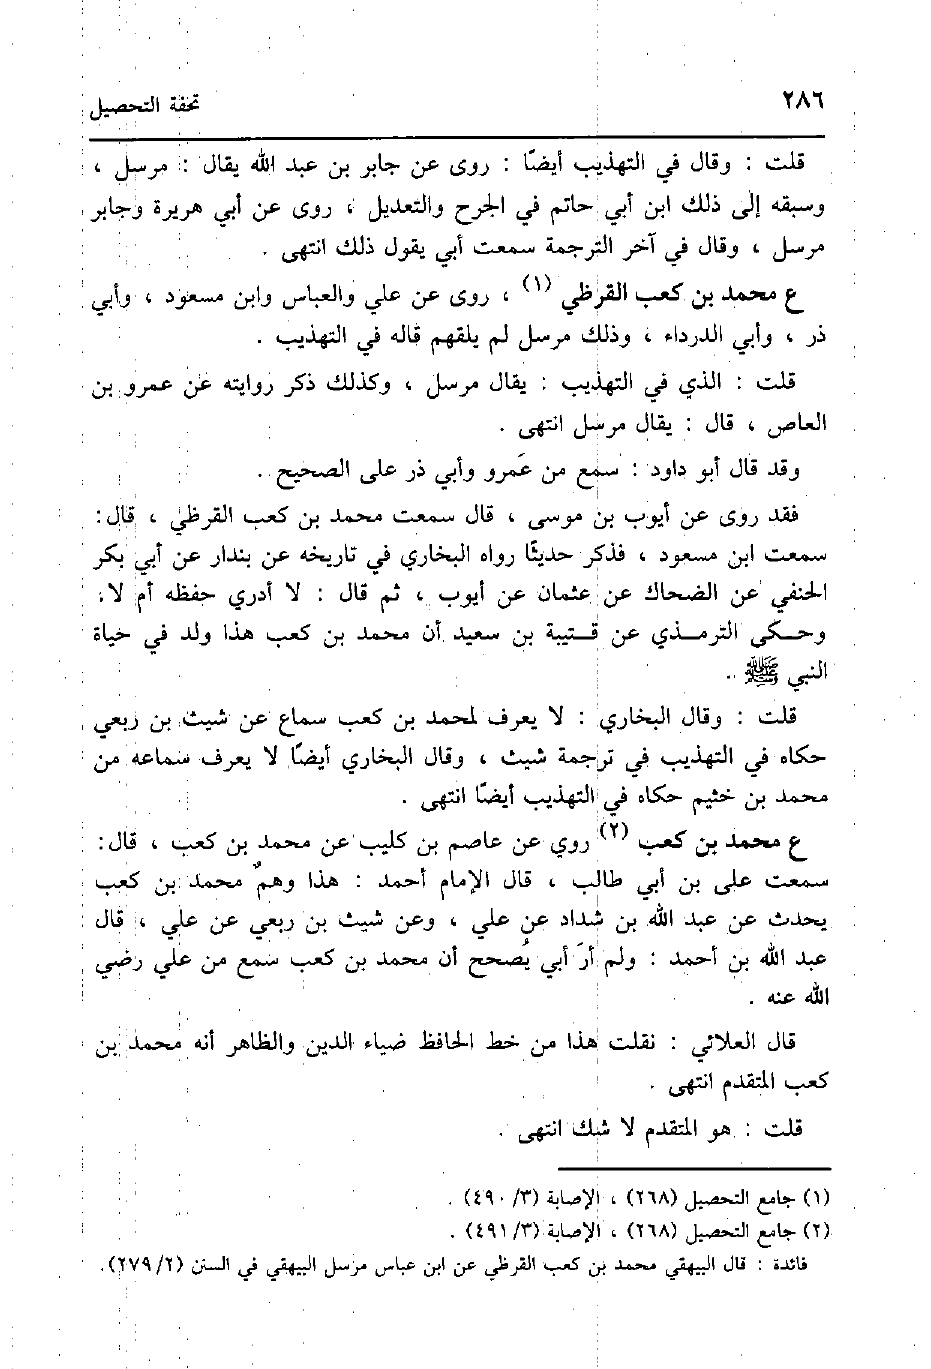 ٢٨٦
تحفة التحصيل
قلت : وقال في التهذيب أيضًا : روى عن جابر بن عبد الله يقال : مرسل ،
وسبقه إلى ذلك ابن أبي حاتم في الجرح والتعديل ، روى عن أبي هريرة وجابر
مرسل ، وقال في آخر الترجمة سمعت أبي يقول ذلك انتهى .
ع محمد بن كعب القرظي (١) ، روى عن علي والعباس وابن مسعود ، وأبي
ذر ، وأبي الدرداء ، وذلك مرسل لم يلقهم قاله في التهذيب .
قلت : الذي في التهذيب : يقال مرسل ، وكذلك ذكر روايته عن عمرو بن
العاص ، قال : يقال مرسل انتهى .
وقد قال أبو داود : سمع من عَمرو وأبي ذر على الصحيح .
فقد روى عن أيوب بن موسى ، قال سمعت محمد بن كعب القرظي ، قال :
سمعت ابن مسعود ، فذكر حديثًا رواه البخاري في تاريخه عن بندار عن أبي بكر
الحنفي عن الضحاك عن عثمان عن أيوب ، ثم قال : لا أدري حفظه أم لا ،
وحكى الترمذي عن قتيبة بن سعيد أن محمد بن كعب هذا ولد في حياة
النبي ﷺ .
قلت : وقال البخاري : لا يعرف لمحمد بن كعب سماع عن شيث بن ربعي
حكاه في التهذيب في ترجمة شيث ، وقال البخاري أيضًا لا يعرف سماعه من
محمد بن خثيم حكاه في التهذيب أيضًا انتهى .
ع محمد بن كعب (٢) روي عن عاصم بن كليب عن محمد بن كعب ، قال :
سمعت على بن أبي طالب ، قال الإمام أحمد : هذا وهمٌ محمد بن كعب
يحدث عن عبد الله بن شداد عن علي ، وعن شيث بن ربعي عن علي ، قال
عبد الله بن أحمد : ولم أرَ أبي يُصحح أن محمد بن كعب سمع من علي رضي
الله عنه .
قال العلائي : نقلت هذا من خط الحافظ ضياء الدين والظاهر أنه محمد بن
كعب المتقدم انتهى .
قلت : هو المتقدم لا شك انتهى .
(١) جامع التحصيل (٢٦٨) ، الإصابة (٣/ ٤٩٠) .
(٢) جامع التحصيل (٢٦٨) ، الإصابة (٣/ ٤٩١) .
فائدة : قال البيهقي محمد بن كعب القرظي عن ابن عباس مرسل البيهقي في السنن (٢/ ٢٧٩).